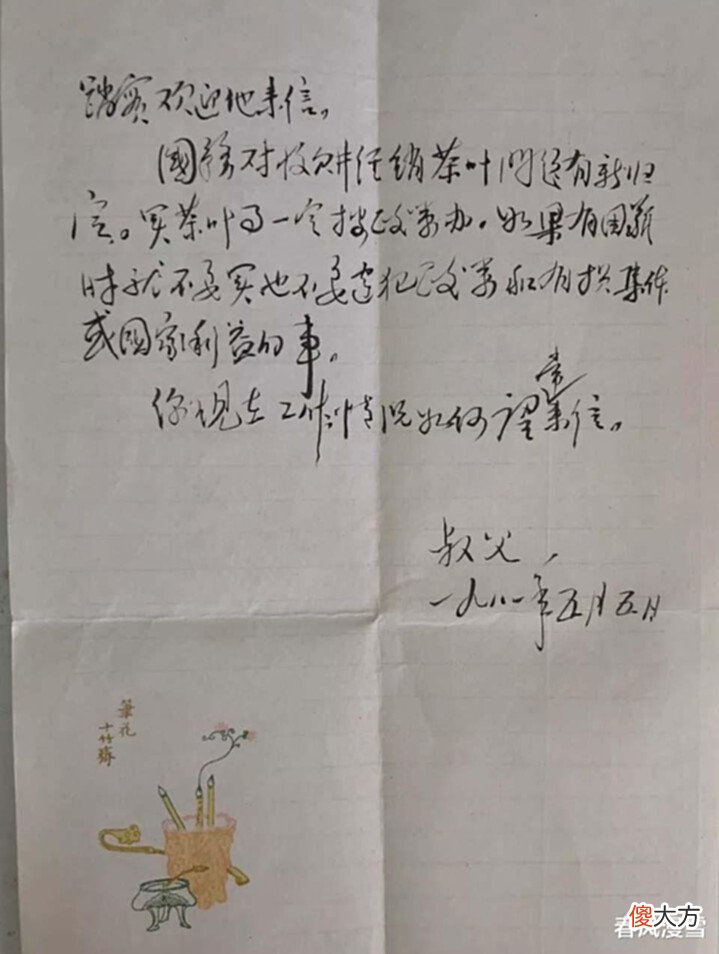 踏实欢迎他来信。
国务对收购经销茶叶问题有新规
定。买茶叶事一定按政策办。如果有困难
时就不要买也不要违犯政策和有损集体
或国家利益的事。
你现在工作情况如何望常来信。
叔父,
一九八一年五月五日
笔花
十竹斋
傻大方
春风漫雪